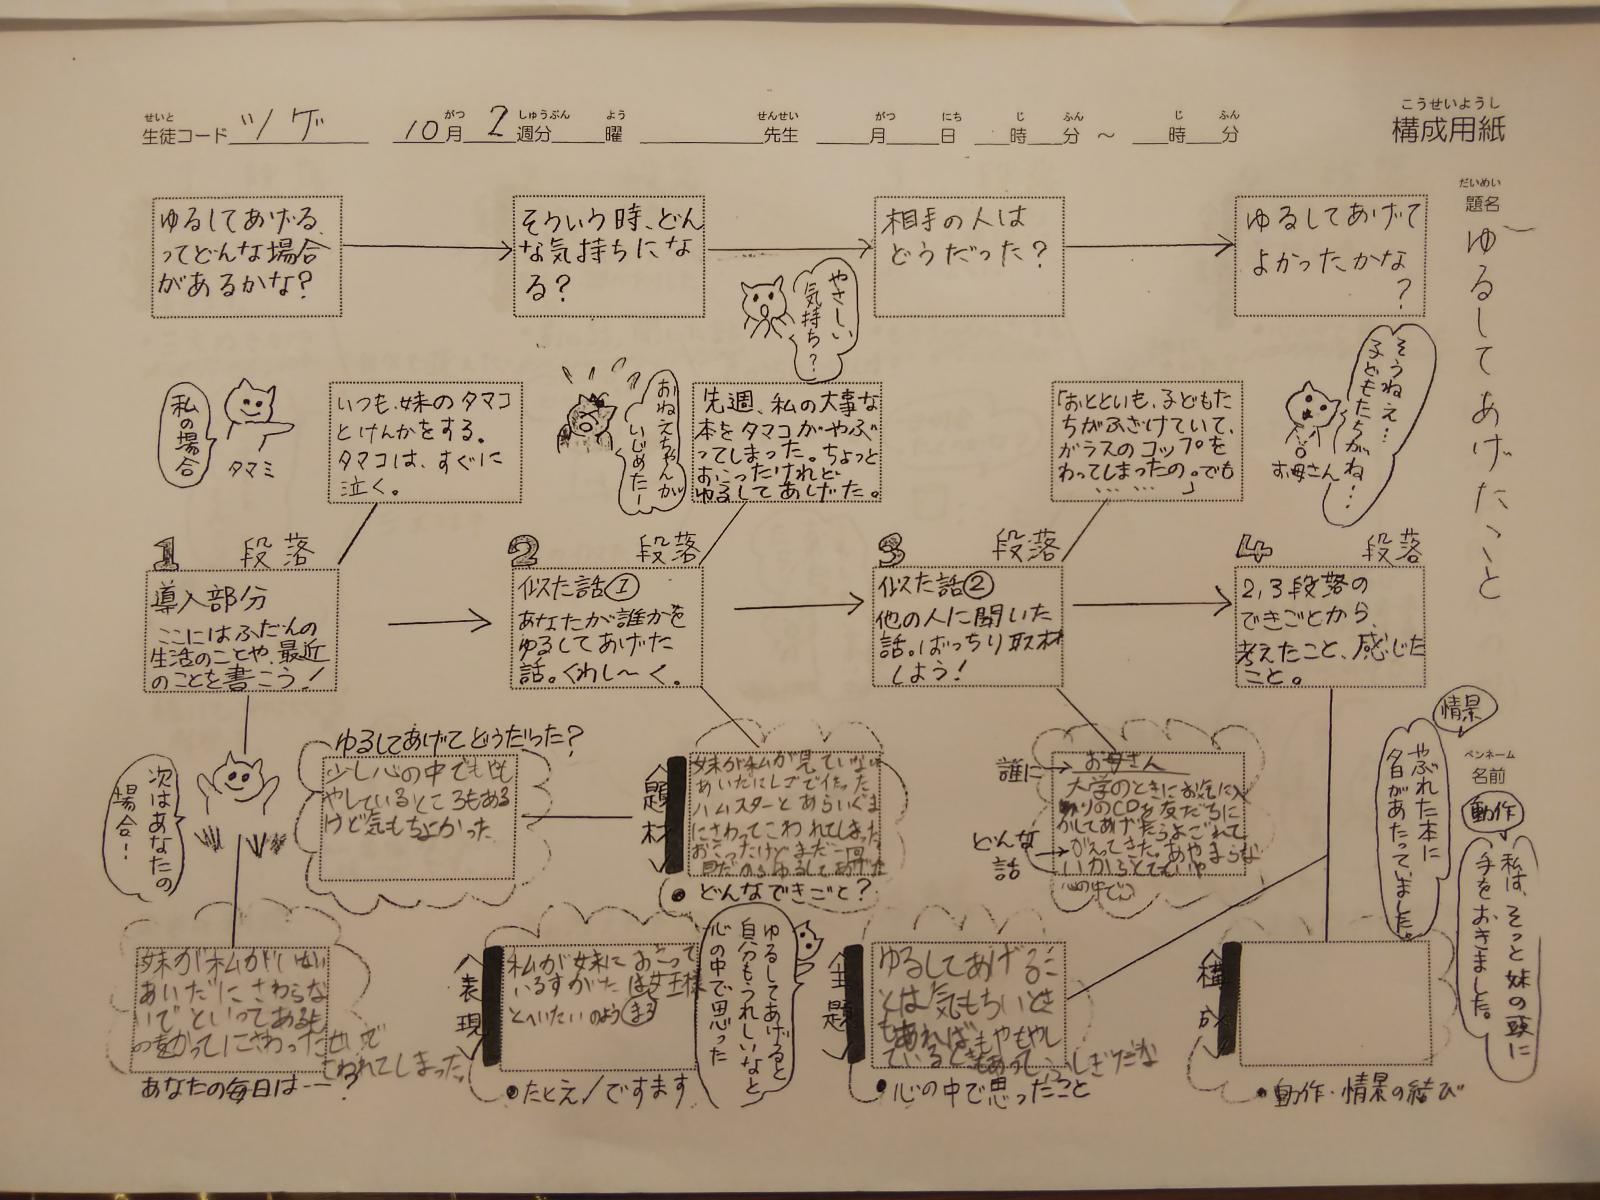 せいと
生徒コード ツゲ
がつ しゅうぶん よう
10月 2週分 曜
せんせい
先生
がつ にち じ ふん じ ふん
月 日 時 分 ～ 時 分
こうせいようし
構成用紙
だいめい
題名
ゆるしてあげたこと
ゆるしてあげる
ってどんな場合
があるかな？
そういう時、どん
な気持ちにな
る？
相手の人は
どうだった？
ゆるしてあげて
よかったかな
？
やさしい
気持ち？
私の場合
タマミ
いつも、妹のタマコ
とけんかをする。
タマコは、すぐに
泣く。
おねえちゃんが
いじめたー
先週、私の大事な
本をタマコがやぶ
ってしまった。ちょっと
おこったけれど
ゆるしてあげた。
「おとといも、子どもた
ちがふざけていて、
ガラスのコップを
わってしまったの。でも
……」
お母さん
そうねえ…
子どもたちがね…
1 段落
導入部分
ここにはふだんの
生活のことや、最近
のことを書こう！
2 段落
似た話①
あなたが誰かを
ゆるしてあげた
話。くわし〜く。
3 段落
似た話②
他の人に聞いた
話。ばっちり取材
しよう！
4 段落
2,3段落の
できごとから、
考えたこと、感じた
こと。
次はあなたの
場合！
ゆるしてあげてどうだった？
少し心の中でもやも
やしているところもある
けど気もちよかった
〈題材〉
妹が私が見ていない
あいだにしごで作った
ハムスターとあらいぐま
にさわってこわれてしまった
おこったけどまだ一回
目だからゆるしてあげた
●どんなできごと？
誰に→
お母さん
どんな
話→
大学のときにお気に入
りのCDを友だちに
かしてあげたらよごれて
かえってきた。あやまらな
いからとてもいや
心の中で
情景
やぶれた本に
夕日があたっていました。
ペンネーム
名前
動作
私は、そっと妹の頭に
手をおきました。
妹が私がいない
あいだにさわらな
いでといってあるも
の勝手にさわったせいで
こわれてしまった
あなたの毎日は…？
〈表現〉
私が妹におこって
いるすがたは女王様
とへいたいのようまる
●たとえ/ですます
ゆるしてあげると
自分もうれしいなと
心の中で思った
〈主題〉
ゆるしてあげるこ
とは気もちいとき
もあればもやもやし
ているときもあってふしぎだな
●心の中で思ったこと
〈構成〉
●動作・情景の結び